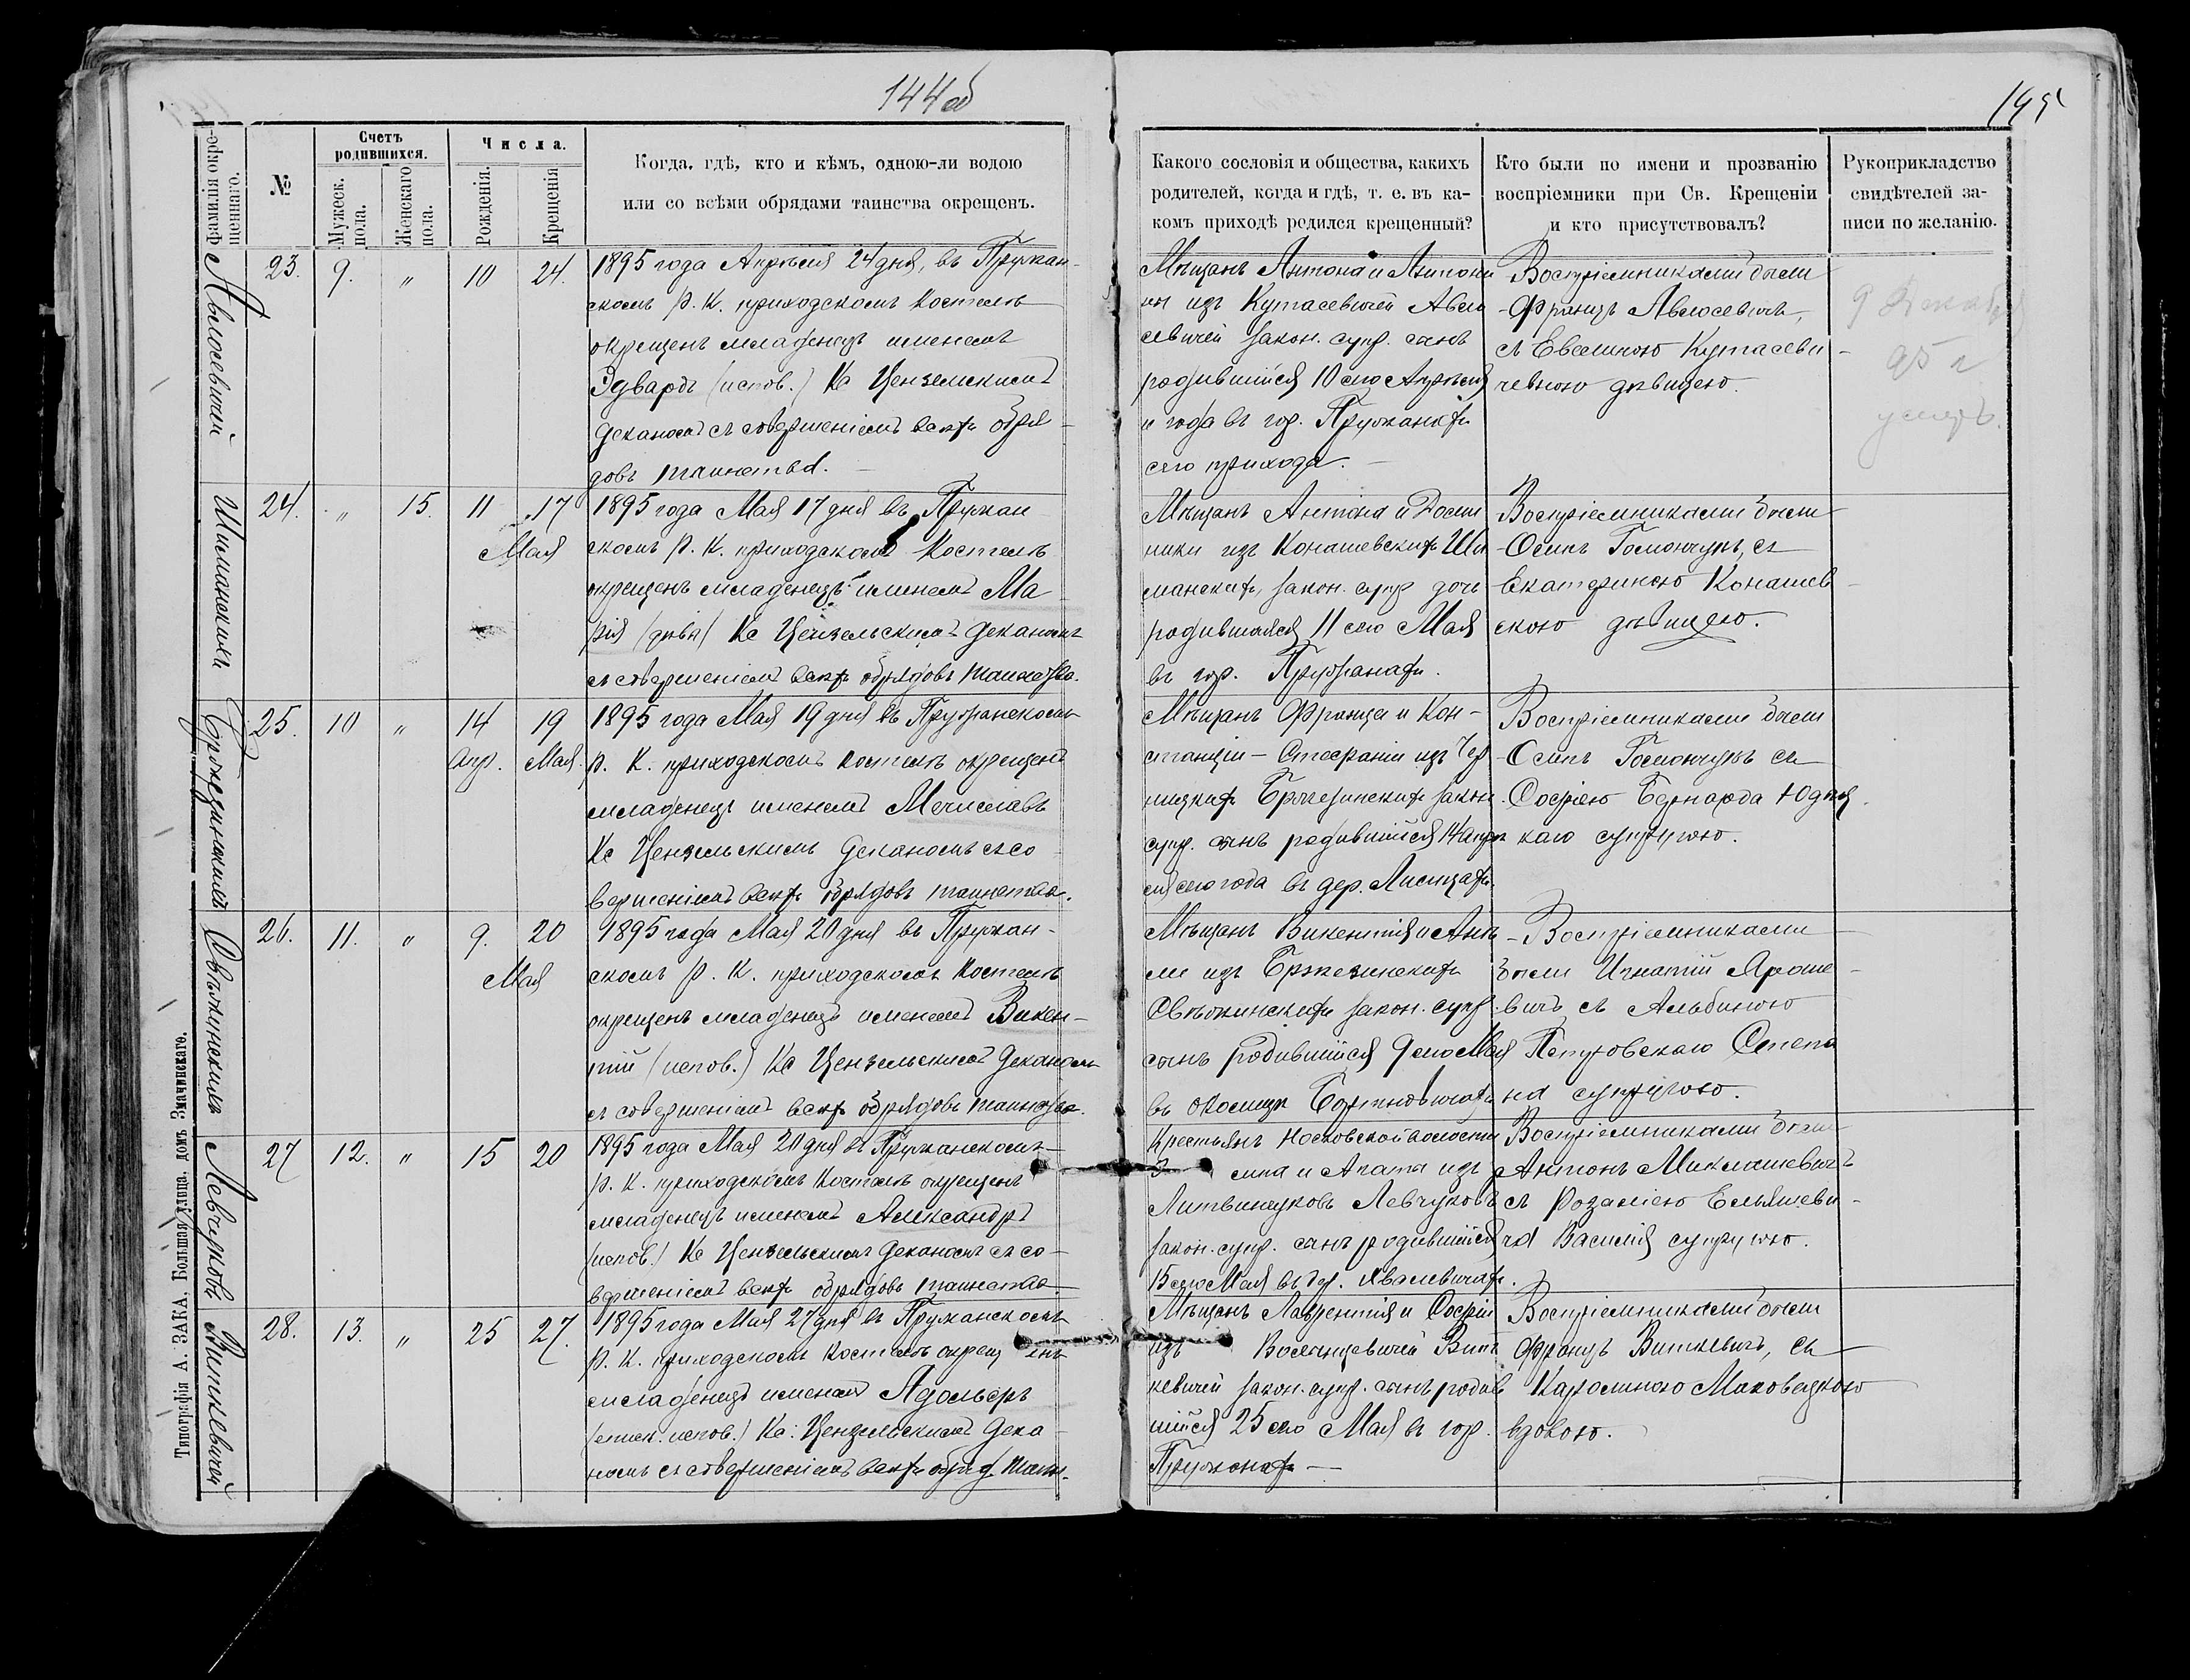 144об
145
Фамилія окре-
щеннаго.
№
Счетъ
родившихся.
Мужеск.
пола.
Женскаго
пола.
Числа.
Рожденія.
Крещенія
Когда, гдѣ, кто и кѣмъ, одною-ли водою
или со всѣми обрядами таинства окрещенъ.
Какого сословія и общества, какихъ
родителей, когда и гдѣ, т. е. въ ка-
комъ приходѣ родился крещенный?
Кто были по имени и прозванію
воспріемники при Св. Крещеніи
и кто присутствовалъ?
Рукоприкладство
свидѣтелей за-
писи по желанію.
Авлосевичей
23. 9. „ 10 24.
1895 года Апрѣля 24 дня, въ Пружан-
скомъ р. К. приходскомъ Костелѣ
окрещенъ младенецъ именемъ
Эдвардъ (испов.) Кс Цензельскимъ
Деканомъ съ совершеніемъ всѣхъ обря-
довъ таинства.
Мѣщанъ Антона и Антони
ны изъ Кутасевичей Авло
севичей закон. супр. сынъ
родившійся 10 сего Апрѣля
и года въ гор. Пружанахъ
сего прихода.
Воспріемниками были
Францъ Авлосевичъ,
съ Евелиною Кутасеви-
чевною дѣвицею.
9 Декабря
95 г
умеръ.
Шиманскихъ
24. „ 15. 11 17
Мая
1895 года Мая 17 дня въ Пружан
скомъ р. К. приходскомъ Костелѣ
окрещенъ младенецъ именемъ Ма
рія (дѣва) Кс Цензельскимъ Деканомъ
съ совершеніемъ всѣхъ обрядовъ таинства.
Мѣщанъ Антона и Доми
ники изъ Конашевскихъ Ши
манскихъ, закон. супр дочь
родившаяся 11 сего Мая
въ гор. Пружанахъ.
Воспріемниками были
Осипъ Гомончукъ, съ
Екатериною Конашев-
скою дѣвицею.
Бржезинскихъ
25. 10 „ 14 19
Апр. Мая.
1895 года Мая 19 дня въ Пружанскомъ
р. К. приходскомъ костелѣ окрещенъ
младенецъ именемъ Мечиславъ
Кс Цензельскимъ Деканомъ съ со
вершеніемъ всѣхъ обрядовъ таинства.
Мѣщанъ Франца и Кон-
станціи-Стефаніи изъ Чер
ницкихъ Бржезинскихъ закон.
супр. сынъ родившійся 14 апрѣ
ля сего года въ дер. Лисицахъ.
Воспріемниками были
Осипъ Гомончукъ съ
Софіею Бернарда Юдыц
каго супругою.
Свѣжинскихъ
26. 11. „ 9. 20
Мая
1895 года Мая 20 дня въ Пружан-
скомъ р. К. приходскомъ Костелѣ
окрещенъ младенецъ именемъ Викен-
тій (испов.) Кс Цензельскимъ Деканомъ
съ совершеніемъ всѣхъ обрядовъ таинства.
Мѣщанъ Викентія и Анѣ
ли изъ Бржезинскихъ
Свѣжинскихъ закон. супр.
сынъ родившійся 9 сего Мая
въ околицѣ
Воспріемниками
были Игнатій Яроше-
вичъ, съ Альбиною
Петровскаго Степа
на супругою.
Левчуковъ
27 12. „ 15 20
1895 года Мая 20 дня въ Пружанскомъ
р. К. приходскомъ Костелѣ окрещенъ
младенецъ именемъ Александръ
(испов.) Кс Цензельскимъ Деканомъ съ со-
вершеніемъ всѣхъ обрядовъ таинства
Крестьянъ Носковской волости
и Агаты изъ
Литвинчуковъ Левчуковъ
закон. супр. сынъ родившійся
15 сего Мая въ дер. Хвалевичахъ.
Воспріемниками были
Антонъ Миклашевичъ
съ Розаліею Ельяшеви-
ча Василія супругою.
Виткевичей
28. 13. „ 25 27.
1895 года Мая 27 дня въ Пружанскомъ
р. К. приходскомъ костелѣ окрещ енъ
младенецъ именемъ Адольфъ
(еписк. испов.) Кс: Цензельскимъ Дека-
номъ съ совершеніемъ всѣхъ обряд. таин.
Мѣщанъ Лаврентія и Софіи
изъ Волонцевичей Вит
кевичей закон. супр. сынъ родив
шійся 25 сего Мая въ гор.
Пружанахъ
Воспріемниками были
Францъ Виткевичъ, съ
Каролиною Маковецкою
вдовою.
Типографія А. ЗАКА, Большая улица, домъ Значинскаго.